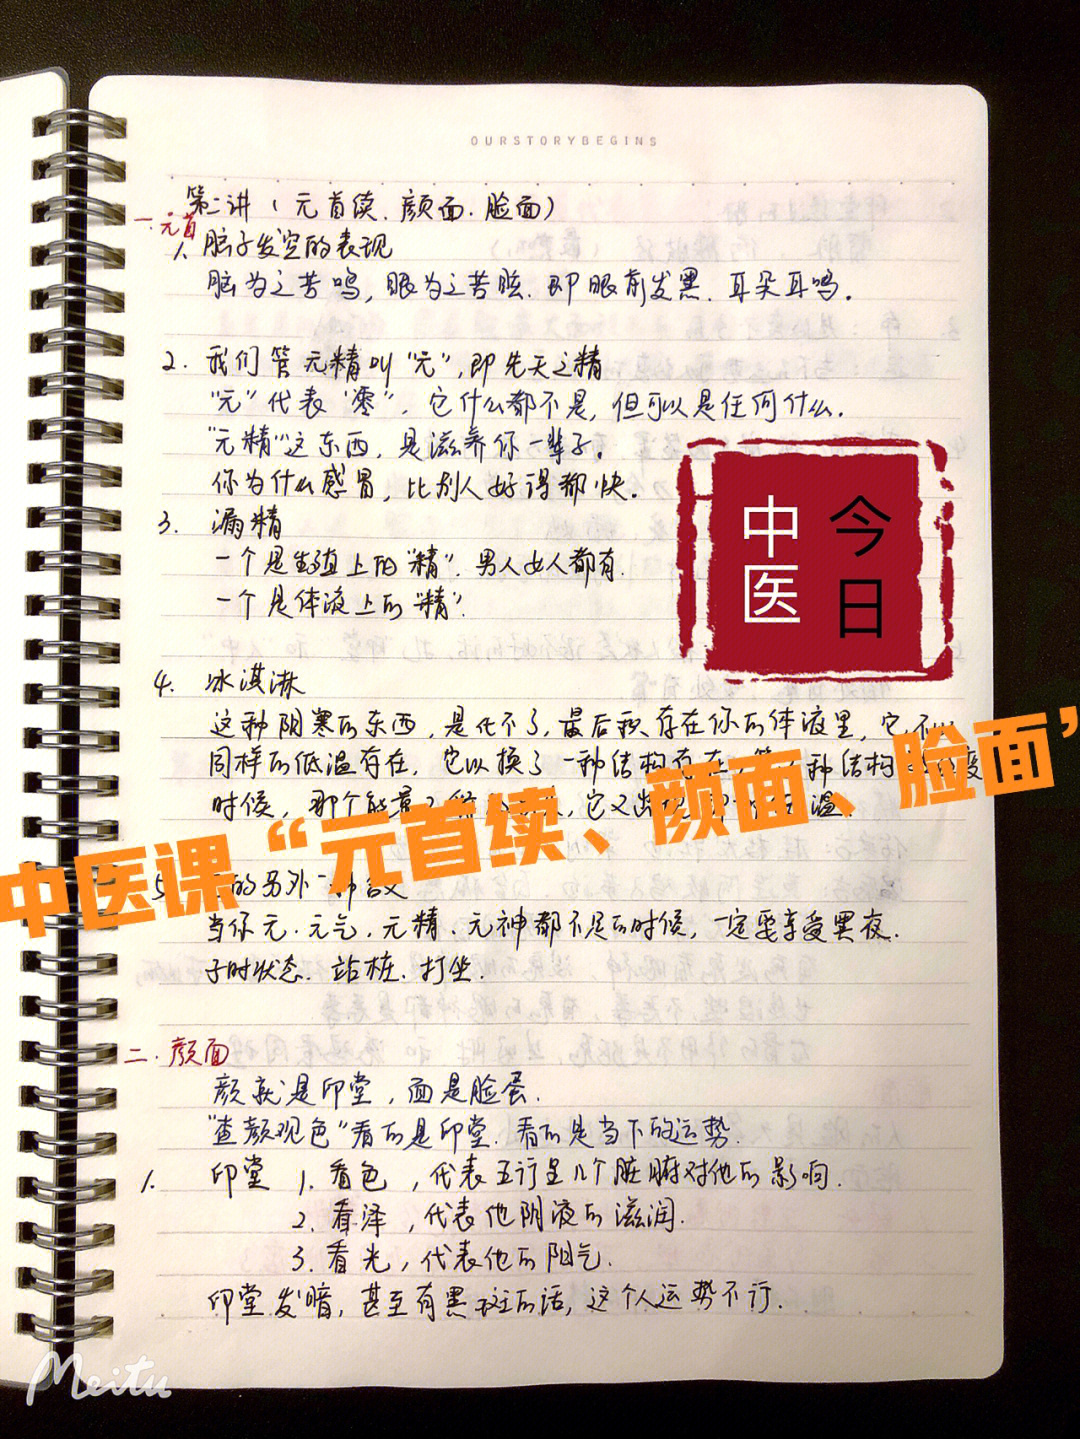 OURSTORYBEGINS
第二讲(元首续.颜面.脸面)
一.元首
1. 脑子发空的表现
脑为之苦鸣,眼为之苦眩.即眼前发黑.耳朵耳鸣。
2. 我们管元精叫“元”,即先天之精
“元”代表“零”.它什么都不是,但可以是任何什么.
“元精”这东西,是滋养你一辈子。
你为什么感冒,比别人好得都快。
3. 漏精
一个是生殖上的“精”.男人女人都有.
一个是体液上的“精”.
今日
中医
4. 冰淇淋
这种阴寒的东西,是化不了,最后积存在你的体液里,它不以
同样的低温存在,它以换了一种结构存在 种结构
时候,那个能量 ,它又出 温
中医课“元首续、颜面、脸面”
5. 的另外一种含义
当你元.元气.元精.元神都不足的时候,一定要享受黑夜.
子时状态.站桩.打坐.
二.颜面
颜就是印堂,面是脸蛋.
“查颜观色”看的是印堂.看的是当下的运势.
1. 印堂 1.看色,代表五行里几个脏腑对他的影响.
2.看泽,代表他阴液的滋润.
3.看光,代表他的阳气.
印堂发暗,甚至有黑斑的话,这个人运势不行.
Meitu